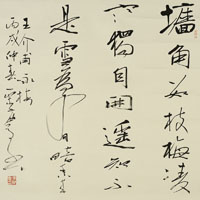 墙角数枝梅凌
寒獨自開遥知不
是雪為有暗香来
王介甫詠梅
丙戌仲春